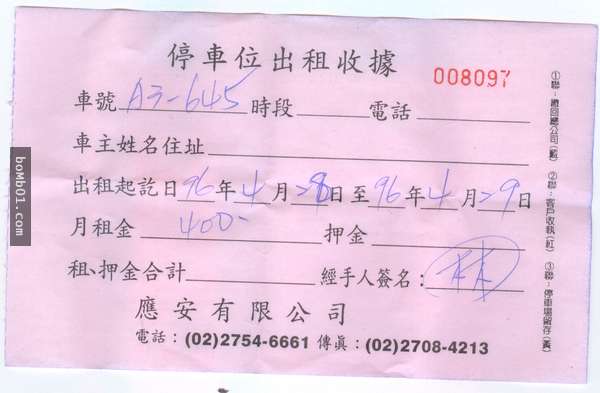 停車位出租收據
008097
車號 A3-645 時段 電話
車主姓名住址
出租起訖日 96 年 4 月 28 日至 96 年 4 月 29 日
月租金 400- 押金
租、押金合計 經手人簽名： 林
應安有限公司
電話：(02)2754-6661 傳真：(02)2708-4213
①聯：繳回總公司(藍) ②聯：客戶收執(紅) ③聯：停車場留存(黃)
bomb01.com